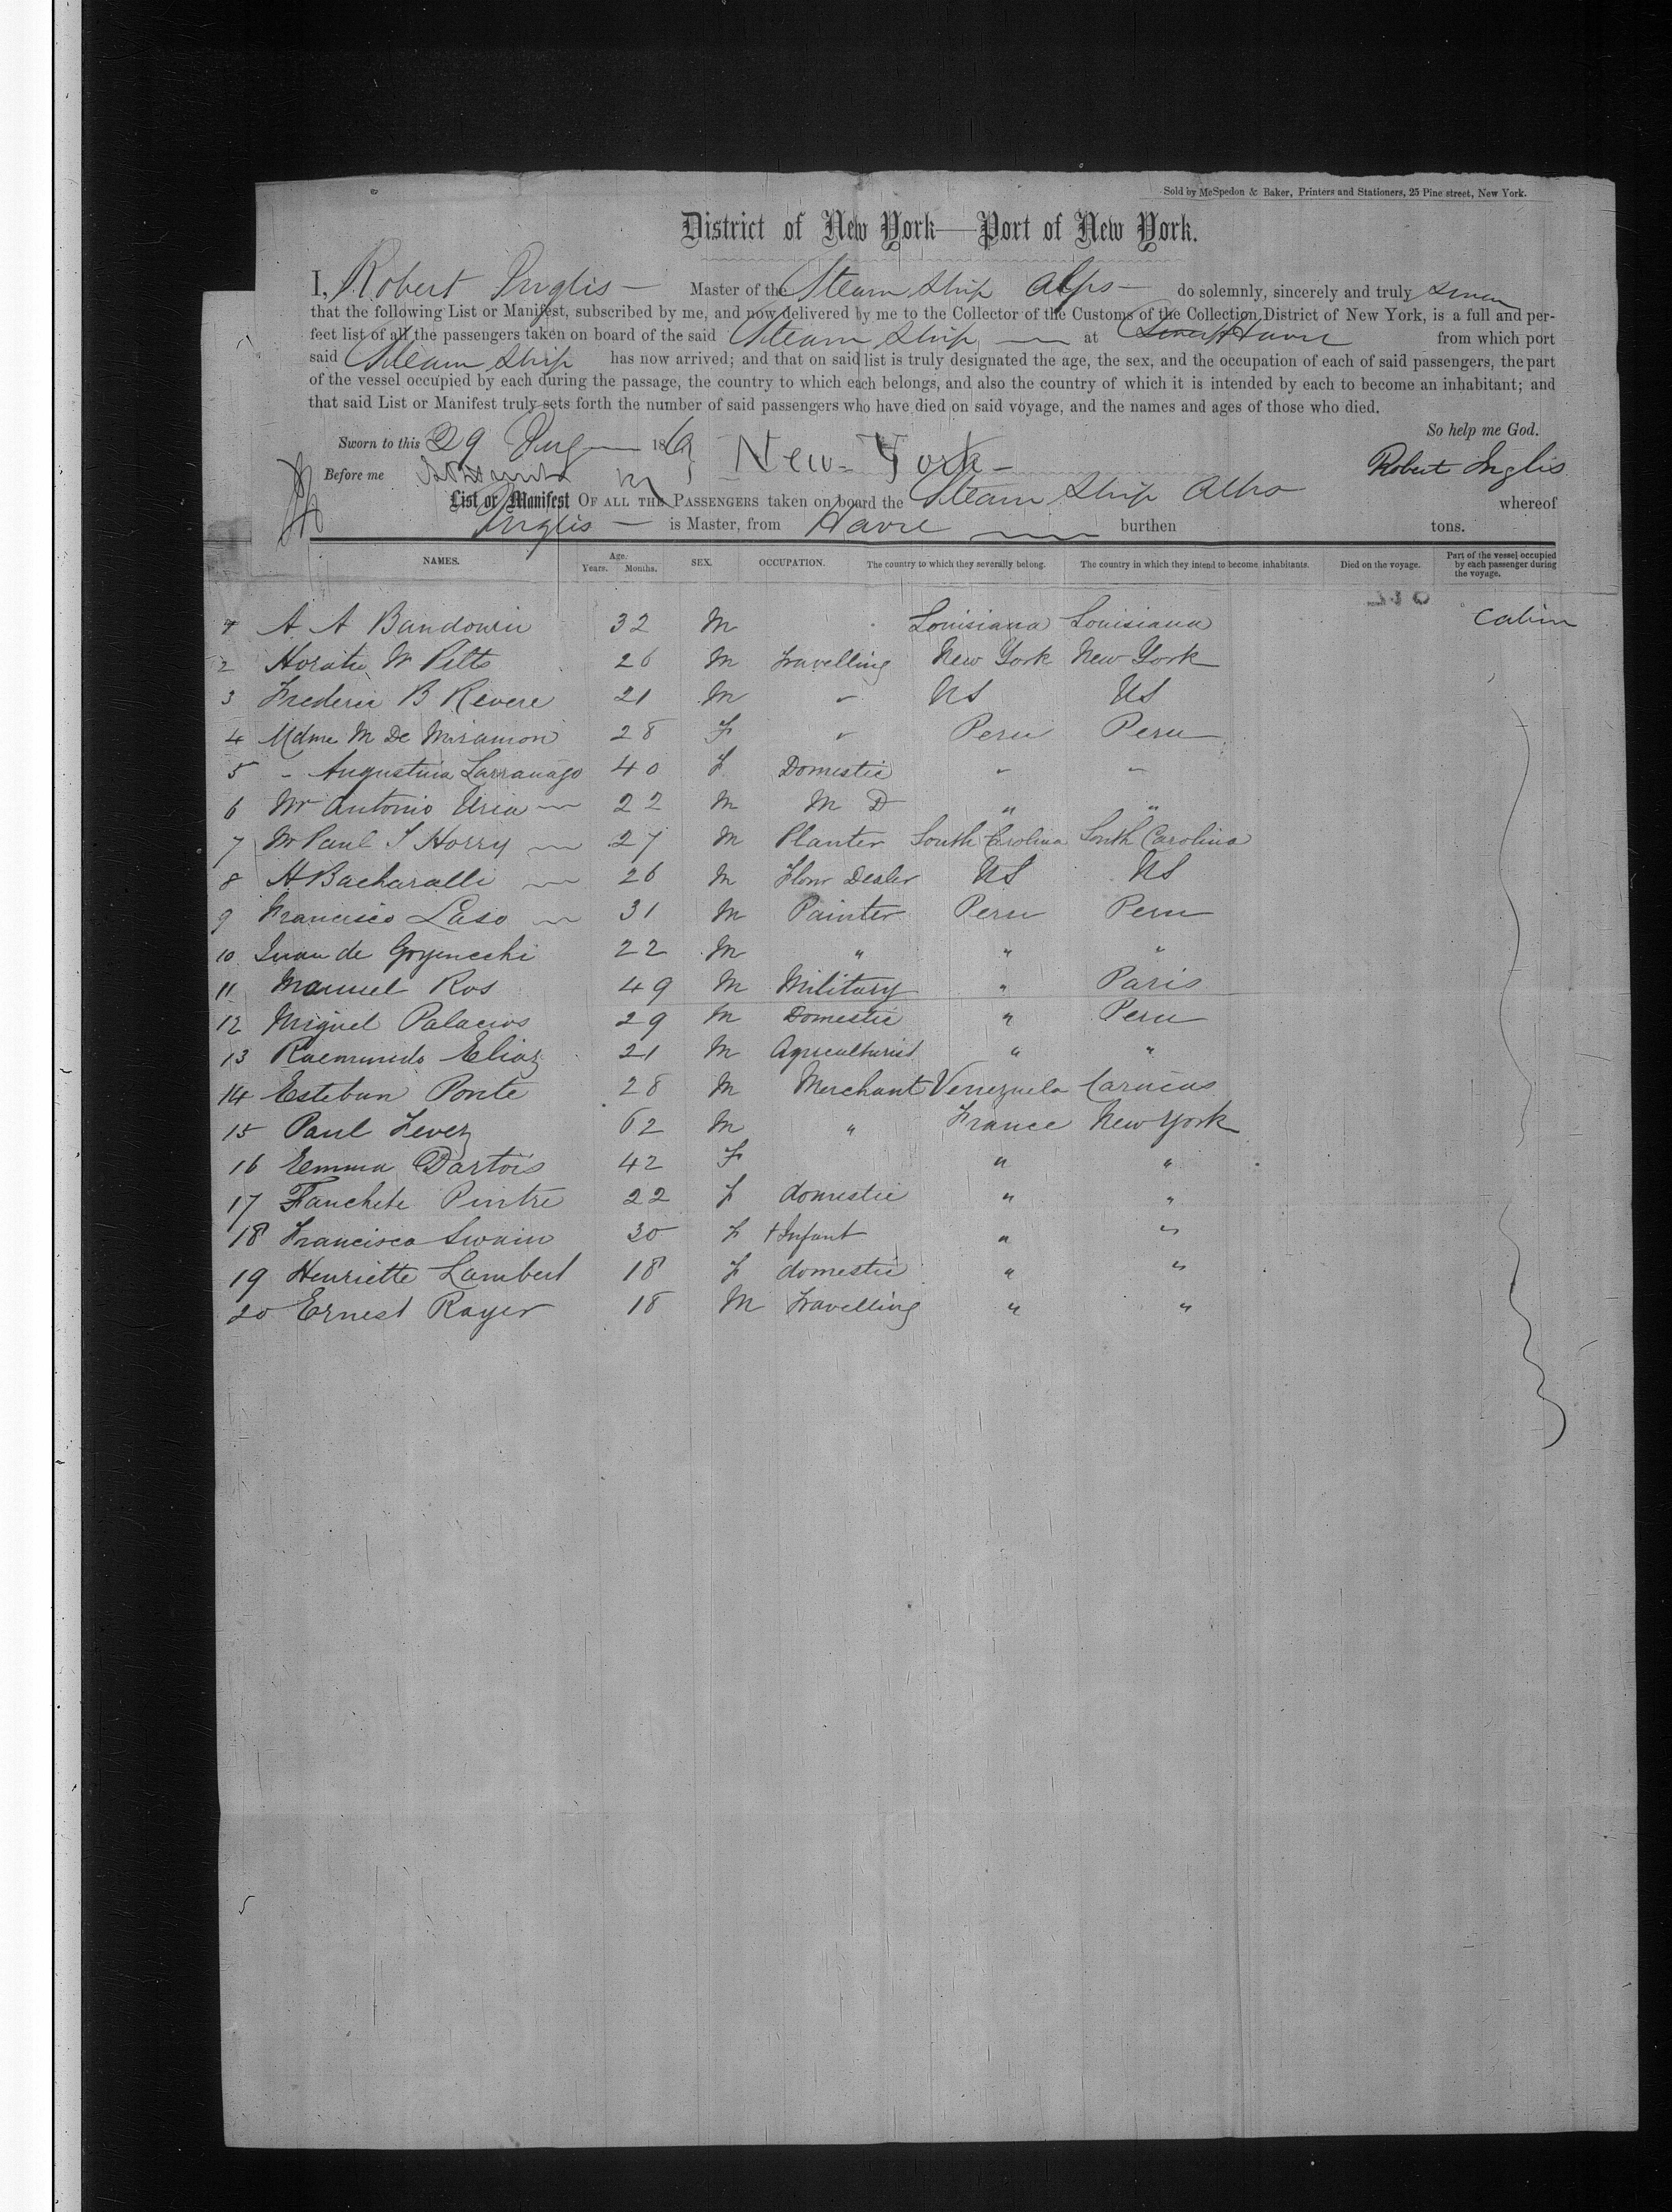 Sold by McSpedon & Baker, Printers and Stationers, 25 Pine street, New York.
District of New York—Port of New York.
I, Robert Inglis — Master of the Steam Ship Alps — do solemnly, sincerely and truly swear
that the following List or Manifest, subscribed by me, and now delivered by me to the Collector of the Customs of the Collection District of New York, is a full and per-
fect list of all the passengers taken on board of the said Steam Ship — at Havre from which port
said Steam Ship has now arrived; and that on said list is truly designated the age, the sex, and the occupation of each of said passengers, the part
of the vessel occupied by each during the passage, the country to which each belongs, and also the country of which it is intended by each to become an inhabitant; and
that said List or Manifest truly sets forth the number of said passengers who have died on said voyage, and the names and ages of those who died.
So help me God.
Sworn to this 29 Aug — 18 New-York- Robert Inglis
Before me
List or Manifest OF ALL THE PASSENGERS taken on board the Steam Ship Alps whereof
Inglis — is Master, from Havre — burthen tons.
NAMES. Age. Years. Months. SEX. OCCUPATION. The country to which they severally belong. The country in which they intend to become inhabitants. Died on the voyage. Part of the vessel occupied by each passenger during the voyage.
1 A A Baudouin 32 M Louisiana Louisiana Cabin
2 Horatio W Pitts 26 M Travelling New York New York
3 Frederic B Revere 21 M " US US
4 Mdme M De Miramon 28 F " Peru Peru
5 " Augustina Larranago 40 F Domestic " "
6 Mr Antonio Uria — 22 M M D " "
7 Mr Paul T Horry — 27 M Planter South Carolina South Carolina
8 H Bacharalli — 26 M Flour Dealer US US
9 Francisco Laso — 31 M Painter Peru Peru
10 Juan de Goyenechi 22 M " " "
11 Manuel Ros 49 M Military " Paris
12 Miguel Palacios 29 M Domestic " Peru
13 Raemundo Elias 21 M Agriculturist " "
14 Esteban Ponte 28 M Merchant Venezuela Caracas
15 Paul Levez 62 M " France New York
16 Emma Dartois 42 F " "
17 Fanchete Pintre 22 F domestic " "
18 Francisca Swain 30 F + Infant " "
19 Henriette Lambert 18 F domestic " "
20 Ernest Rayer 18 M Travelling " "